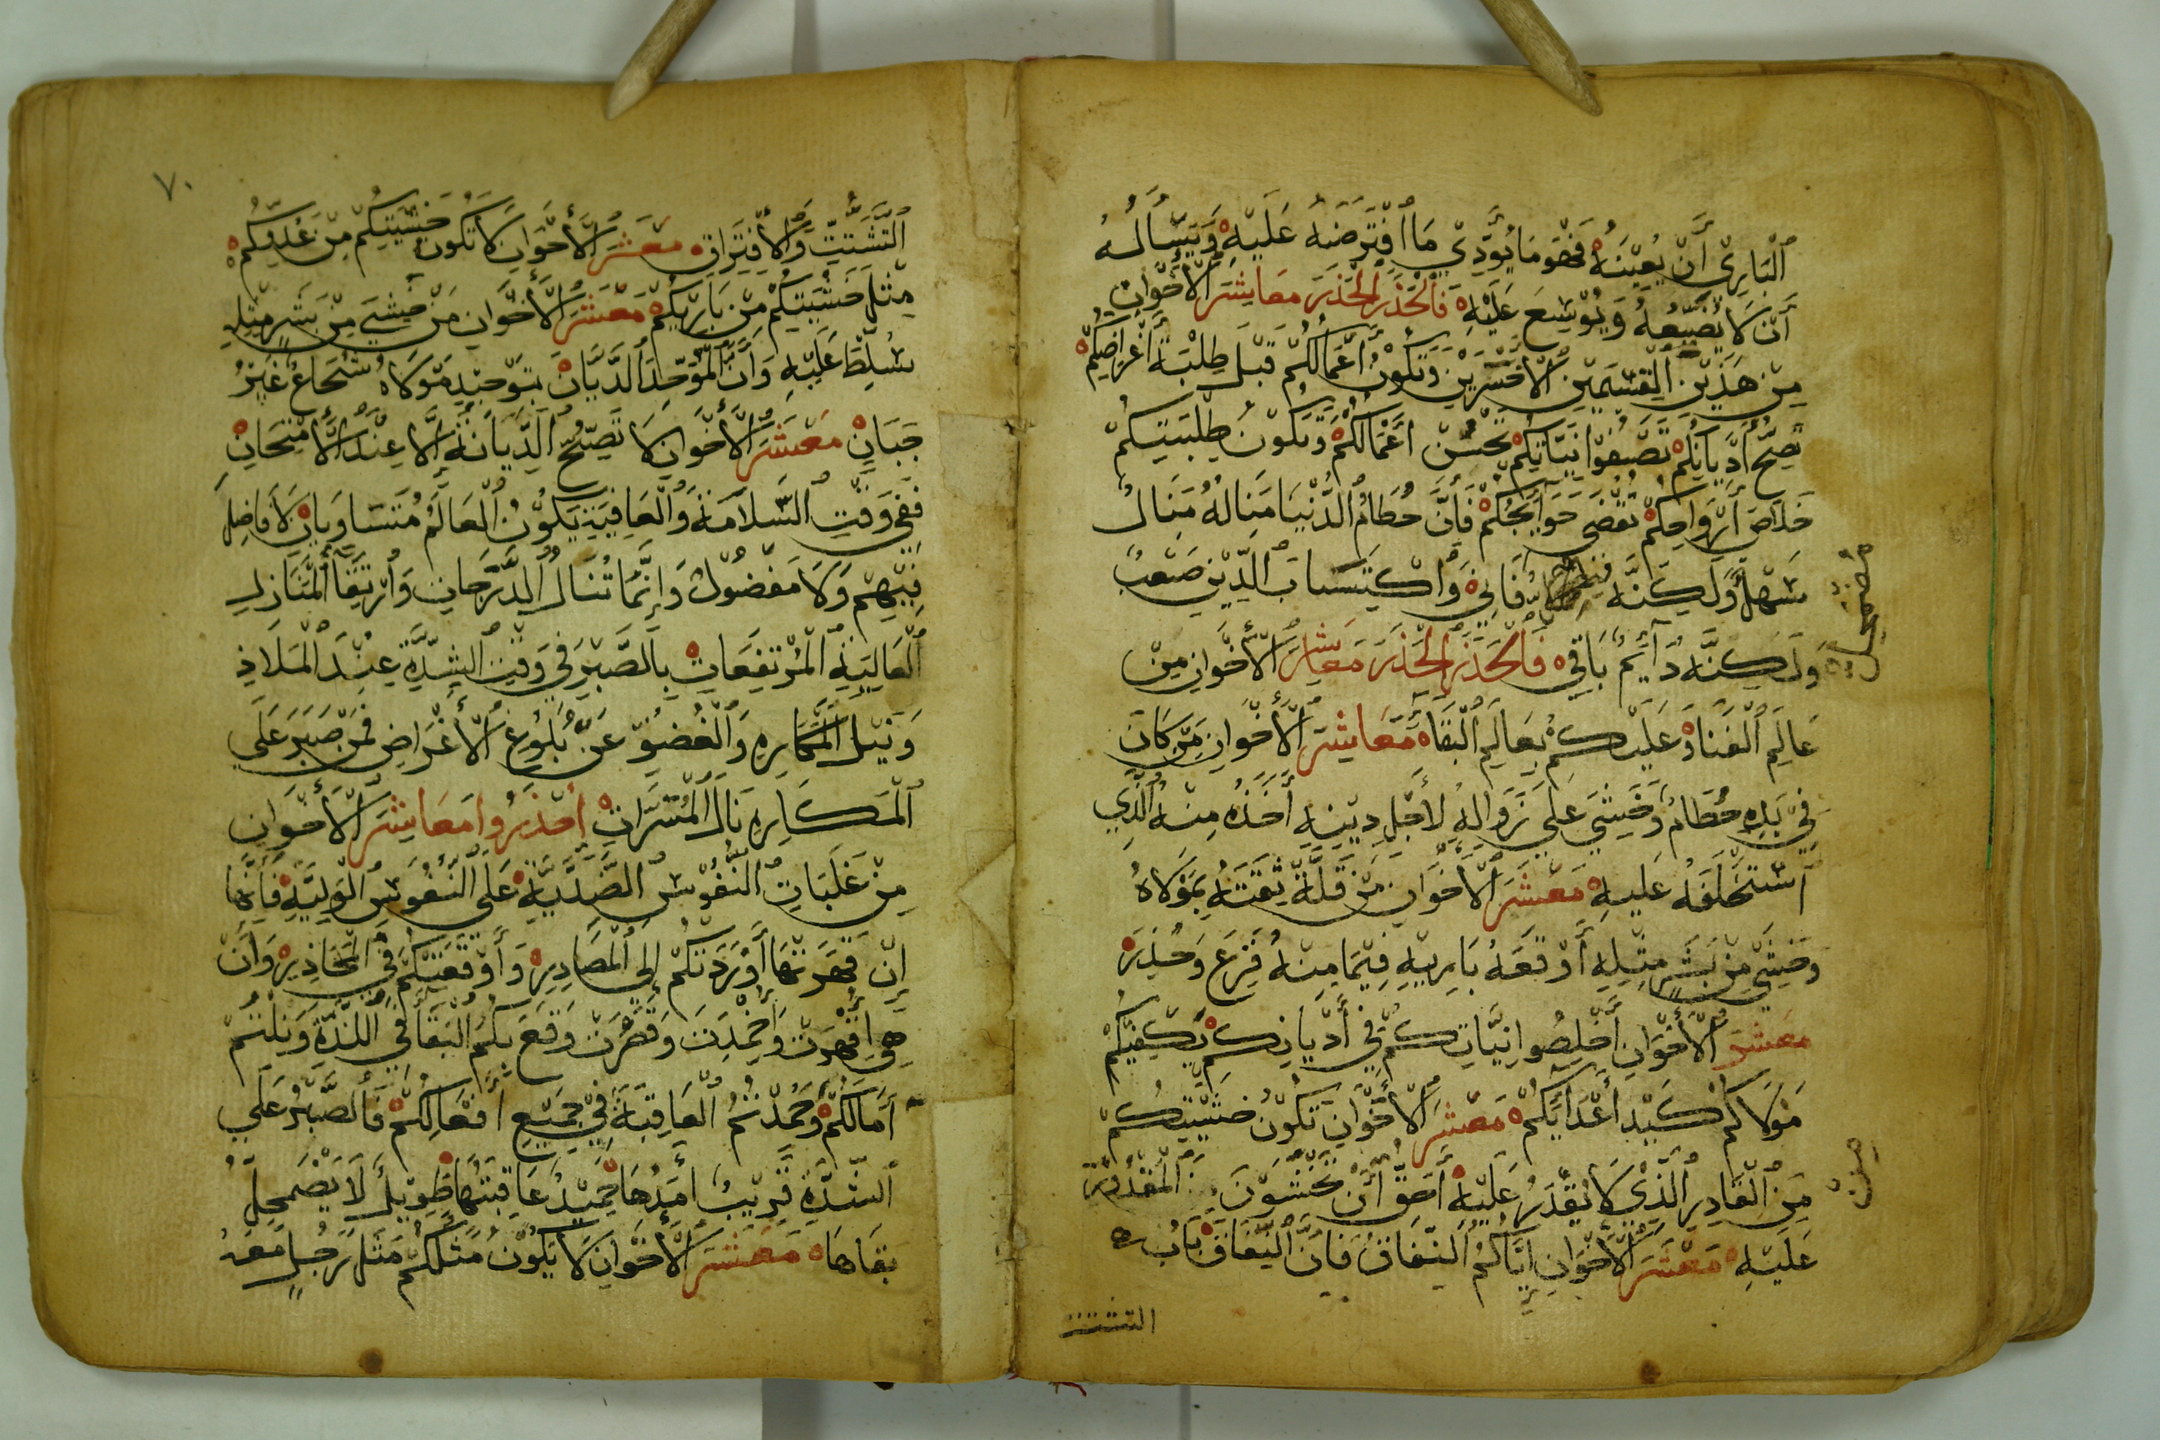 ٱلْبَارِيْ أَنْ يُعِيْنَهُ فَهْوَ مَا يُوَّدِيْ مَا ٱفْتَرَضَهُ عَلَيْهِ وَيَسْأَلُهُ
أَنْ لَا يُضَيِّعُهُ وَيُوَسِّعَ عَلَيْهِ فَٱلْحَذَرَ ٱلْحَذَرَ مَعَاشِرَ ٱلْأَخْوَانِ
مِنْ هَذَيْنِ ٱلْقِسْمَيْنِ ٱلْأَخْسَرَيْنِ وَتَكُوْنُ أَعْمَالُكُمْ قَبْلَ طِلْبَةِ أَغْرَاضِكُمْ
تَصِحُّ أَدْيَانُكُمْ تَصْفُوْا نِيَّاتُكُمْ تَحْسُنْ أَعْمَالُكُمْ وَتَكُونُ طِلْبَتِكُمْ
خَلَاصَ أَرْوَاحِكُمْ تُقْضَى حَوَايِجُكُمْ فَأَنَّ حُطَامُ ٱلدُّنْيَا مَنَالُهُ مَنَالٌ
سَهْلٌ وَلَكِنَّهُ فَانِيْ وَٱكْتِسَابَ ٱلدِّيْنِ صَعْبٌ
مضمحل
وَلَكِنَّهُ دَآئِمٌ بَاقِيْ فَٱلْحَذَرَ ٱلْحَذَرَ مَعَاشِرَ ٱلْأَخْوَانِ مِنْ
عَالَمِ ٱلْفَنَاءِ وَعَلَيْكُمْ بِعَالَمِ ٱلْبَقَاءِ مَعَاشِرَ ٱلْأَخْوَانِ مَنْ كَانَ
فِيْ يَدِهِ حُطَامٌ وَخَشِيَ عَلَى زَوَالِهِ لِأَجْلِ دِيْنِهِ أَخَذَهُ مِنْهُ ٱلَّذِي
ٱسْتَخْلَفَهُ عَلَيهِ مَعْشَرَ ٱلْأَخْوَانِ مَنْ قَلَّةْ ثِقَتَهُ بِمَوْلَاهُ
وَخَشِيَ مِنْ بَشَرٍ مِثْلِهِ أَوْقَعَهُ بَارِيْهِ فِيْمَا مِنْهُ فَزِعَ وَحَذِرَ
مَعْشَرَ ٱلْأَخْوَانِ أَخْلِصُوا نِيَّاتِكُمْ فِي أَدْيَانِكُمْ يَكْفِيْكُمْ
مَوْلَاكُمْ كَيْدَ أَعْدَائِكُمْ مَعْشَرَ ٱلْأَخْوَانِ تَكُوْنُ خَشْيَتِكُمْ
مِنَ ٱلْقَادِرِ ٱلَّذِيْ لَا يُقْدَرُ عَلَيْهِ أَحَقُّ أَنْ تَخْشَوْنَ ٱلْمَقْدُوْرَ
مِنَ
عَلَيْهِ مَعْشَرَ ٱلْأَخْوَانِ إِيَّاكُمُ ٱلنِّفَاقُ فَإِنَّ ٱلنِّفَاقَ بَابُ
التشتت
٧٠
ٱلتَّشَتُّتِ وَٱلْأِفْتِرَاقِ مَعْشَرَ ٱلْأَخْوَانِ لَا تَكُونُ خَشْيَتِكُمْ مِنْ عَدُوِّكُمْ
مِثْلَ خَشْيَتِكُمْ مِنْ بَارِيْكُمْ مَعْشَرَ ٱلْأَخْوَانِ مَنْ خَشِيَ مِنْ بَشَرٍ مِثْلِهِ
سُلِّطَ عَلَيْهِ وَأَنَّ ٱلْمُوَحِّدَ ٱلدَّيَّانَ بِتَوْحِيْدِ مَوْلَاهُ شُجَاعٌ غَيْرُ
جَبَانٍ مَعْشَرَ ٱلْأَخْوَانِ لَا تَصِحُّ ٱلدِّيَانَةُ إِلَّا عِنْدَ ٱلْأَمْتِحَانِ
فَفِي وَقْتِ ٱلسَّلَامَةِ وَٱلْعَافِيَةِ يَكُوْنُ ٱلْعَالَمُ مُتَسَاوِيَانِ لَا فَاضِلَ
فِيْهِمْ وَلَا مَفْضُوْلٌ وَإِنَّمَا تُنَالُ ٱلدَّرَجَاتِ وَٱرْتِقَآ ٱلْمَنَازِلِ
ٱلْعَالِيَةِ ٱلْمُرْتَفِعَاتِ بِٱلصَّبْرِ فِي وَقْتِ ٱلشِدَّةِ عِنْدَ ٱلْمَلَاذِ
وَنَيْلِ ٱلْمَكَارِهِ وَٱلْغُضُوْ عَنْ بُلُوْغِ ٱلْأَغْرَاضِ فَمَنْ صَبَرَ عَلَى
ٱلْمَكَارِهِ نَالَ ٱلْمَسَرَّاتِ إِحْذَرُوا مَعَاشِرَ ٱلْأَخْوَانِ
مِنْ غَلَبَاتِ ٱلنُّفُوْسِ ٱلضِدِّيَّةِ عَلَى ٱلنُّفُوْسِ ٱلْوَلِيَّةِ فَإِنَّهَا
إِنْ قَهَرَتْهَا أَوْرَدَتْكُمْ إِلَى ٱلْمَصَادِرِ وَأَوْقَعَتْكُمْ فِي ٱلْمَحَاذِيرِ وَأَنْ
هِيَ ٱقْهُرَتْ وَٱخْمِدَتْ وَقَصُرَتْ وَقَعَ بِكُمُ ٱلْبَقَآ فِي ٱللَّذَّةِ وَنِلْتُمْ
آمَالَكُمْ وَحُمِدْتُمُ ٱلْعَاقِبَةَ فِيْ جَمِيْعِ أَفْعَالِكُمْ فَٱلصَّبْرُ عَلَى
ٱلشِّدَّةِ قَرِيْبٌ أَمَدُهَا حَمِيْدٌ عَاقِبَتُهَا طَوِيْلٌ لَا يَضْمَحِلُّ
بَقَاهَا مَعْشَرَ ٱلْأَخْوَانِ لَا يَكُوْنُ مَثَلُكُمْ مَثَلُ رَجُلٍ مَعَهُ